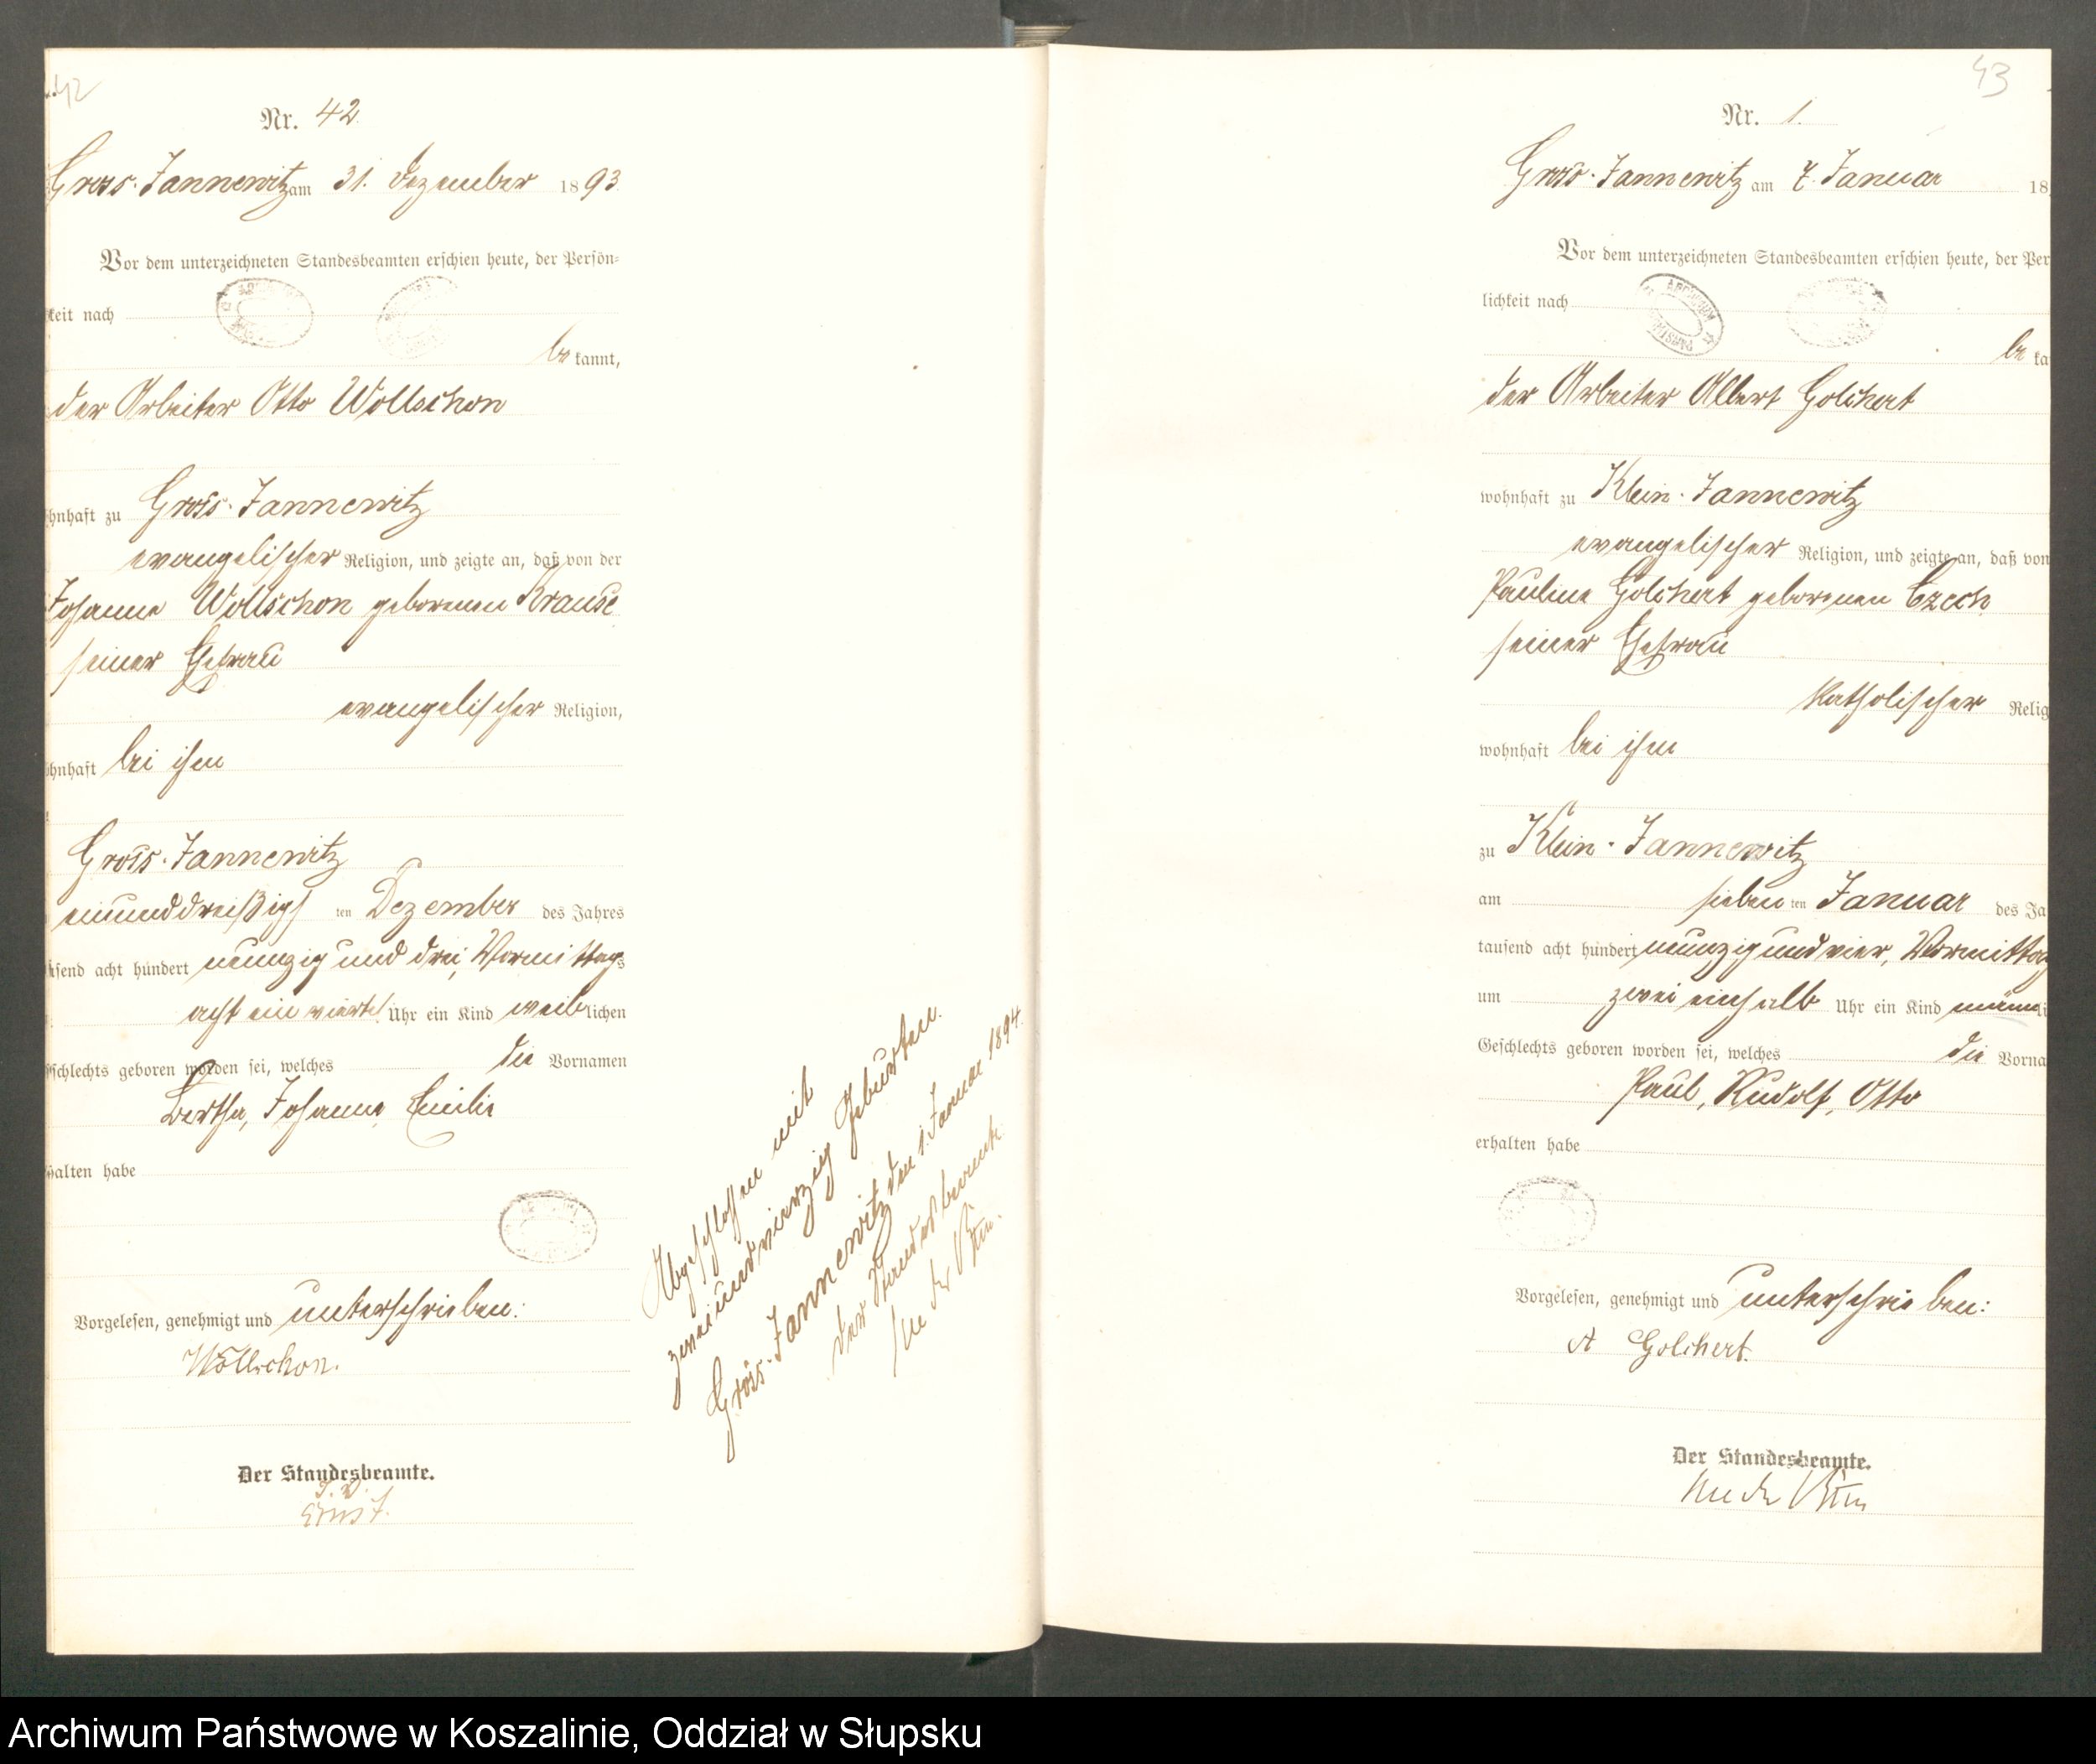 42
Nr. 42.
Gross-Jannewitz am 31. Dezember 1893.
Vor dem unterzeichneten Standesbeamten erschien heute, der Persön=
keit nach
be kannt,
der Arbeiter Otto Wollschon
hnhaft zu Gross-Jannewitz
evangelischer Religion, und zeigte an, daß von der
Johanne Wollschon geborenen Krause
seiner Ehefrau
evangelischer Religion,
ohnhaft bei ihm
Gross-Jannewitz
einunddreißigs ten Dezember des Jahres
usend acht hundert neunzig und drei, Vormittags
acht ein viertel Uhr ein Kind weiblichen
schlechts geboren worden sei, welches die Vornamen
Bertha, Johanne, Emilie
halten habe
Vorgelesen, genehmigt und unterschrieben:
Wollschon.
Der Standesbeamte.
I. V.
Ernst.
Abgeschlossen mit
zweiundvierzig Geburten.
Gross-Jannewitz den 1. Januar 1894.
Der Standesbeamte.
43
Nr. 1.
Gross-Jannewitz am 7. Januar 18
Vor dem unterzeichneten Standesbeamten erschien heute, der Per
lichkeit nach
be ka
der Arbeiter Albert Golchert
wohnhaft zu Klein-Jannewitz
evangelischer Religion, und zeigte an, daß von
Pauline Golchert geborenen Czech
seiner Ehefrau
katholischer Relig
wohnhaft bei ihm
zu Klein-Jannewitz
am sieben ten Januar des Ja
tausend acht hundert neunzig und vier, Vormittag
um zwei einhalb Uhr ein Kind männli
Geschlechts geboren worden sei, welches die Vorna
Paul, Rudolf, Otto
erhalten habe
Vorgelesen, genehmigt und unterschrieben:
A Golchert.
Der Standesbeamte.
Archiwum Państwowe w Koszalinie, Oddział w Słupsku